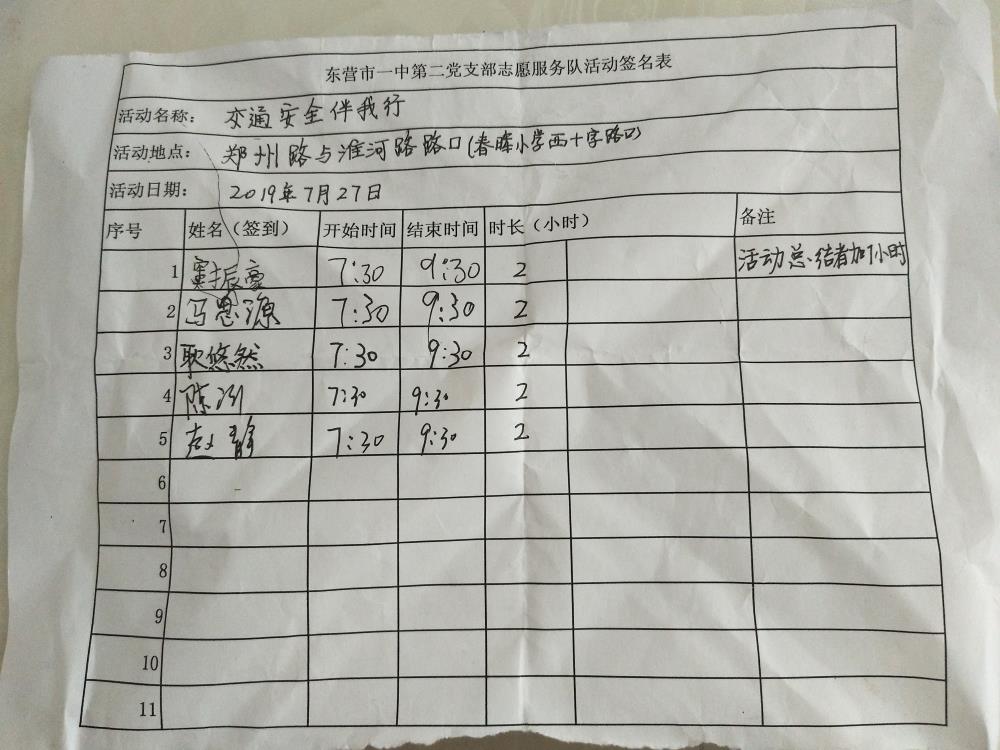 东营市一中第二党支部志愿服务队活动签名表
活动名称： 交通安全伴我行
活动地点： 郑州路与淮河路路口(春晖小学西十字路口)
活动日期： 2019年7月27日
序号 姓名（签到） 开始时间 结束时间 时长（小时） 备注
1 窦振豪 7:30 9:30 2 活动总结者加1小时
2 冯思源 7:30 9:30 2
3 耿悠然 7:30 9:30 2
4 陈 7:30 9:30 2
5 赵静 7:30 9:30 2
6
7
8
9
10
11